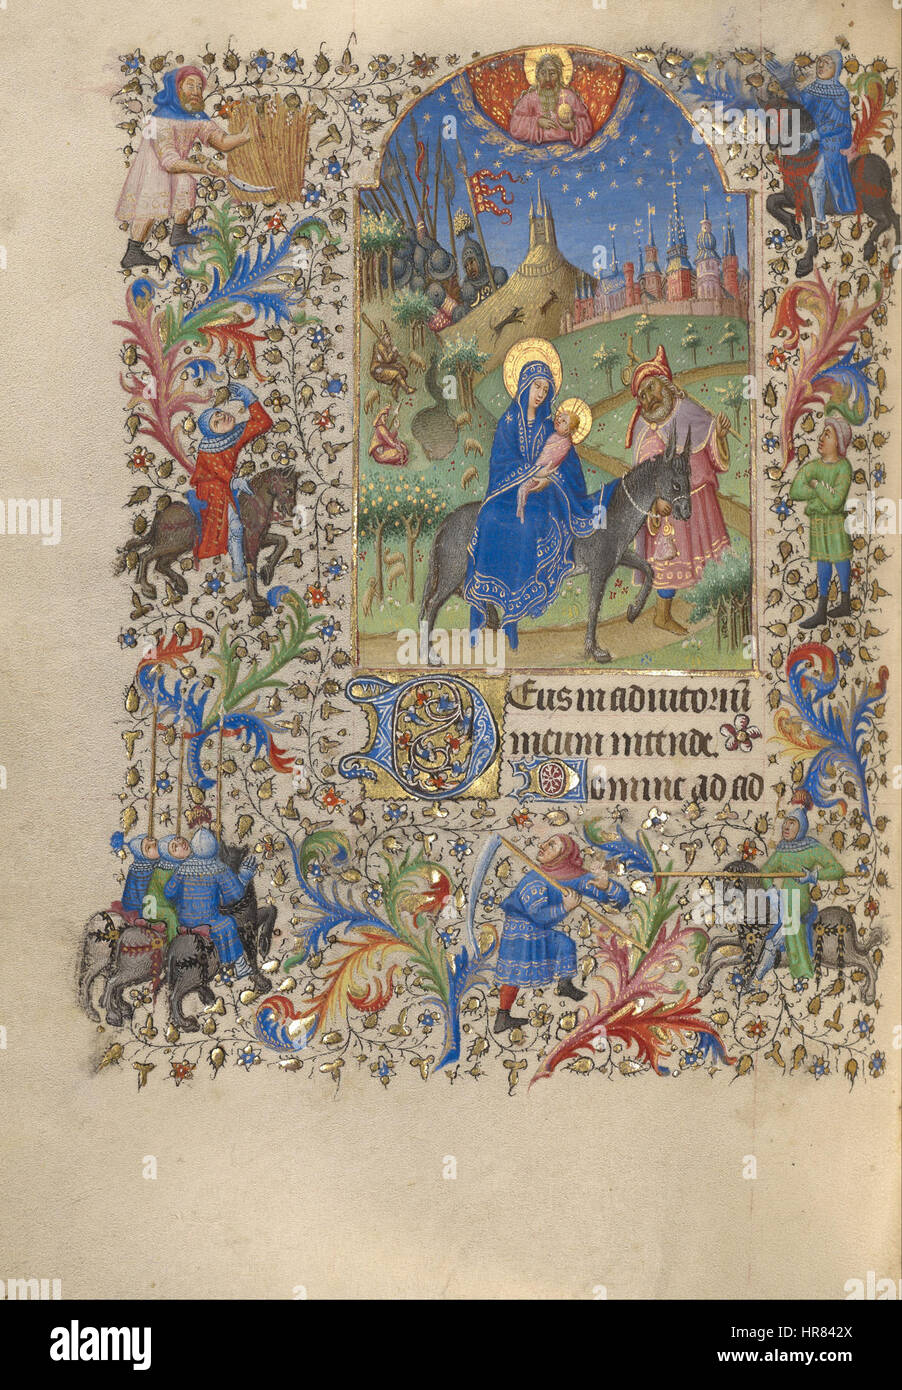 Deus in adiutoriu͞
meum intende.
Domine ad ad
alamy
Image ID: HR842X
www.alamy.com